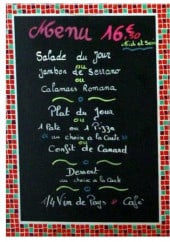 Menu 16,50
Midi et Soir
Salade du Jour
ou
Jambon de Serrano
ou
Calamars Romana
Plat du jour
ou
1 Pate ou 1 Pizza
au choix a la Carte
ou
Confit de Canard
Dessert
au choix a la Carte
1/4 Vin de Pays Café